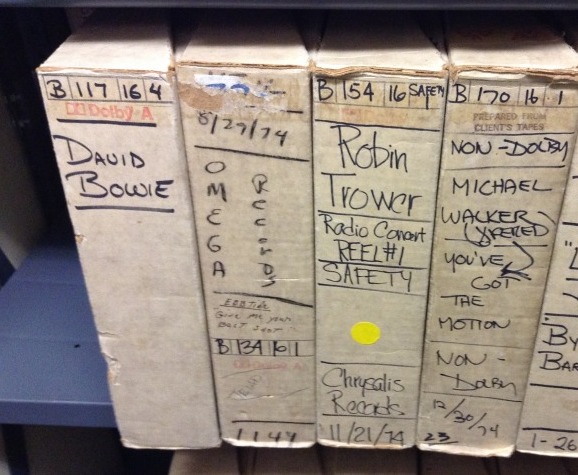 B 117 16 4
Dolby A
DAVID
BOWIE
8/29/74
OMEGA
Records
EBB Tide
"Give me your
BEST SHOT"
B 134 16 1
Dolby A
1144
B 154 16 SAFETY
Robin
Trower
Radio Concert
REEL #1
SAFETY
Chrysalis
Records
11/21/74
B 170 16 1
PREPARED FROM
CLIENT'S TAPES
NON-DOLBY
MICHAEL
WALKER
YOU'VE
GOT
THE
MOTION
NON-
DOLBY
12/30/74
23
BY
BAR
1-26